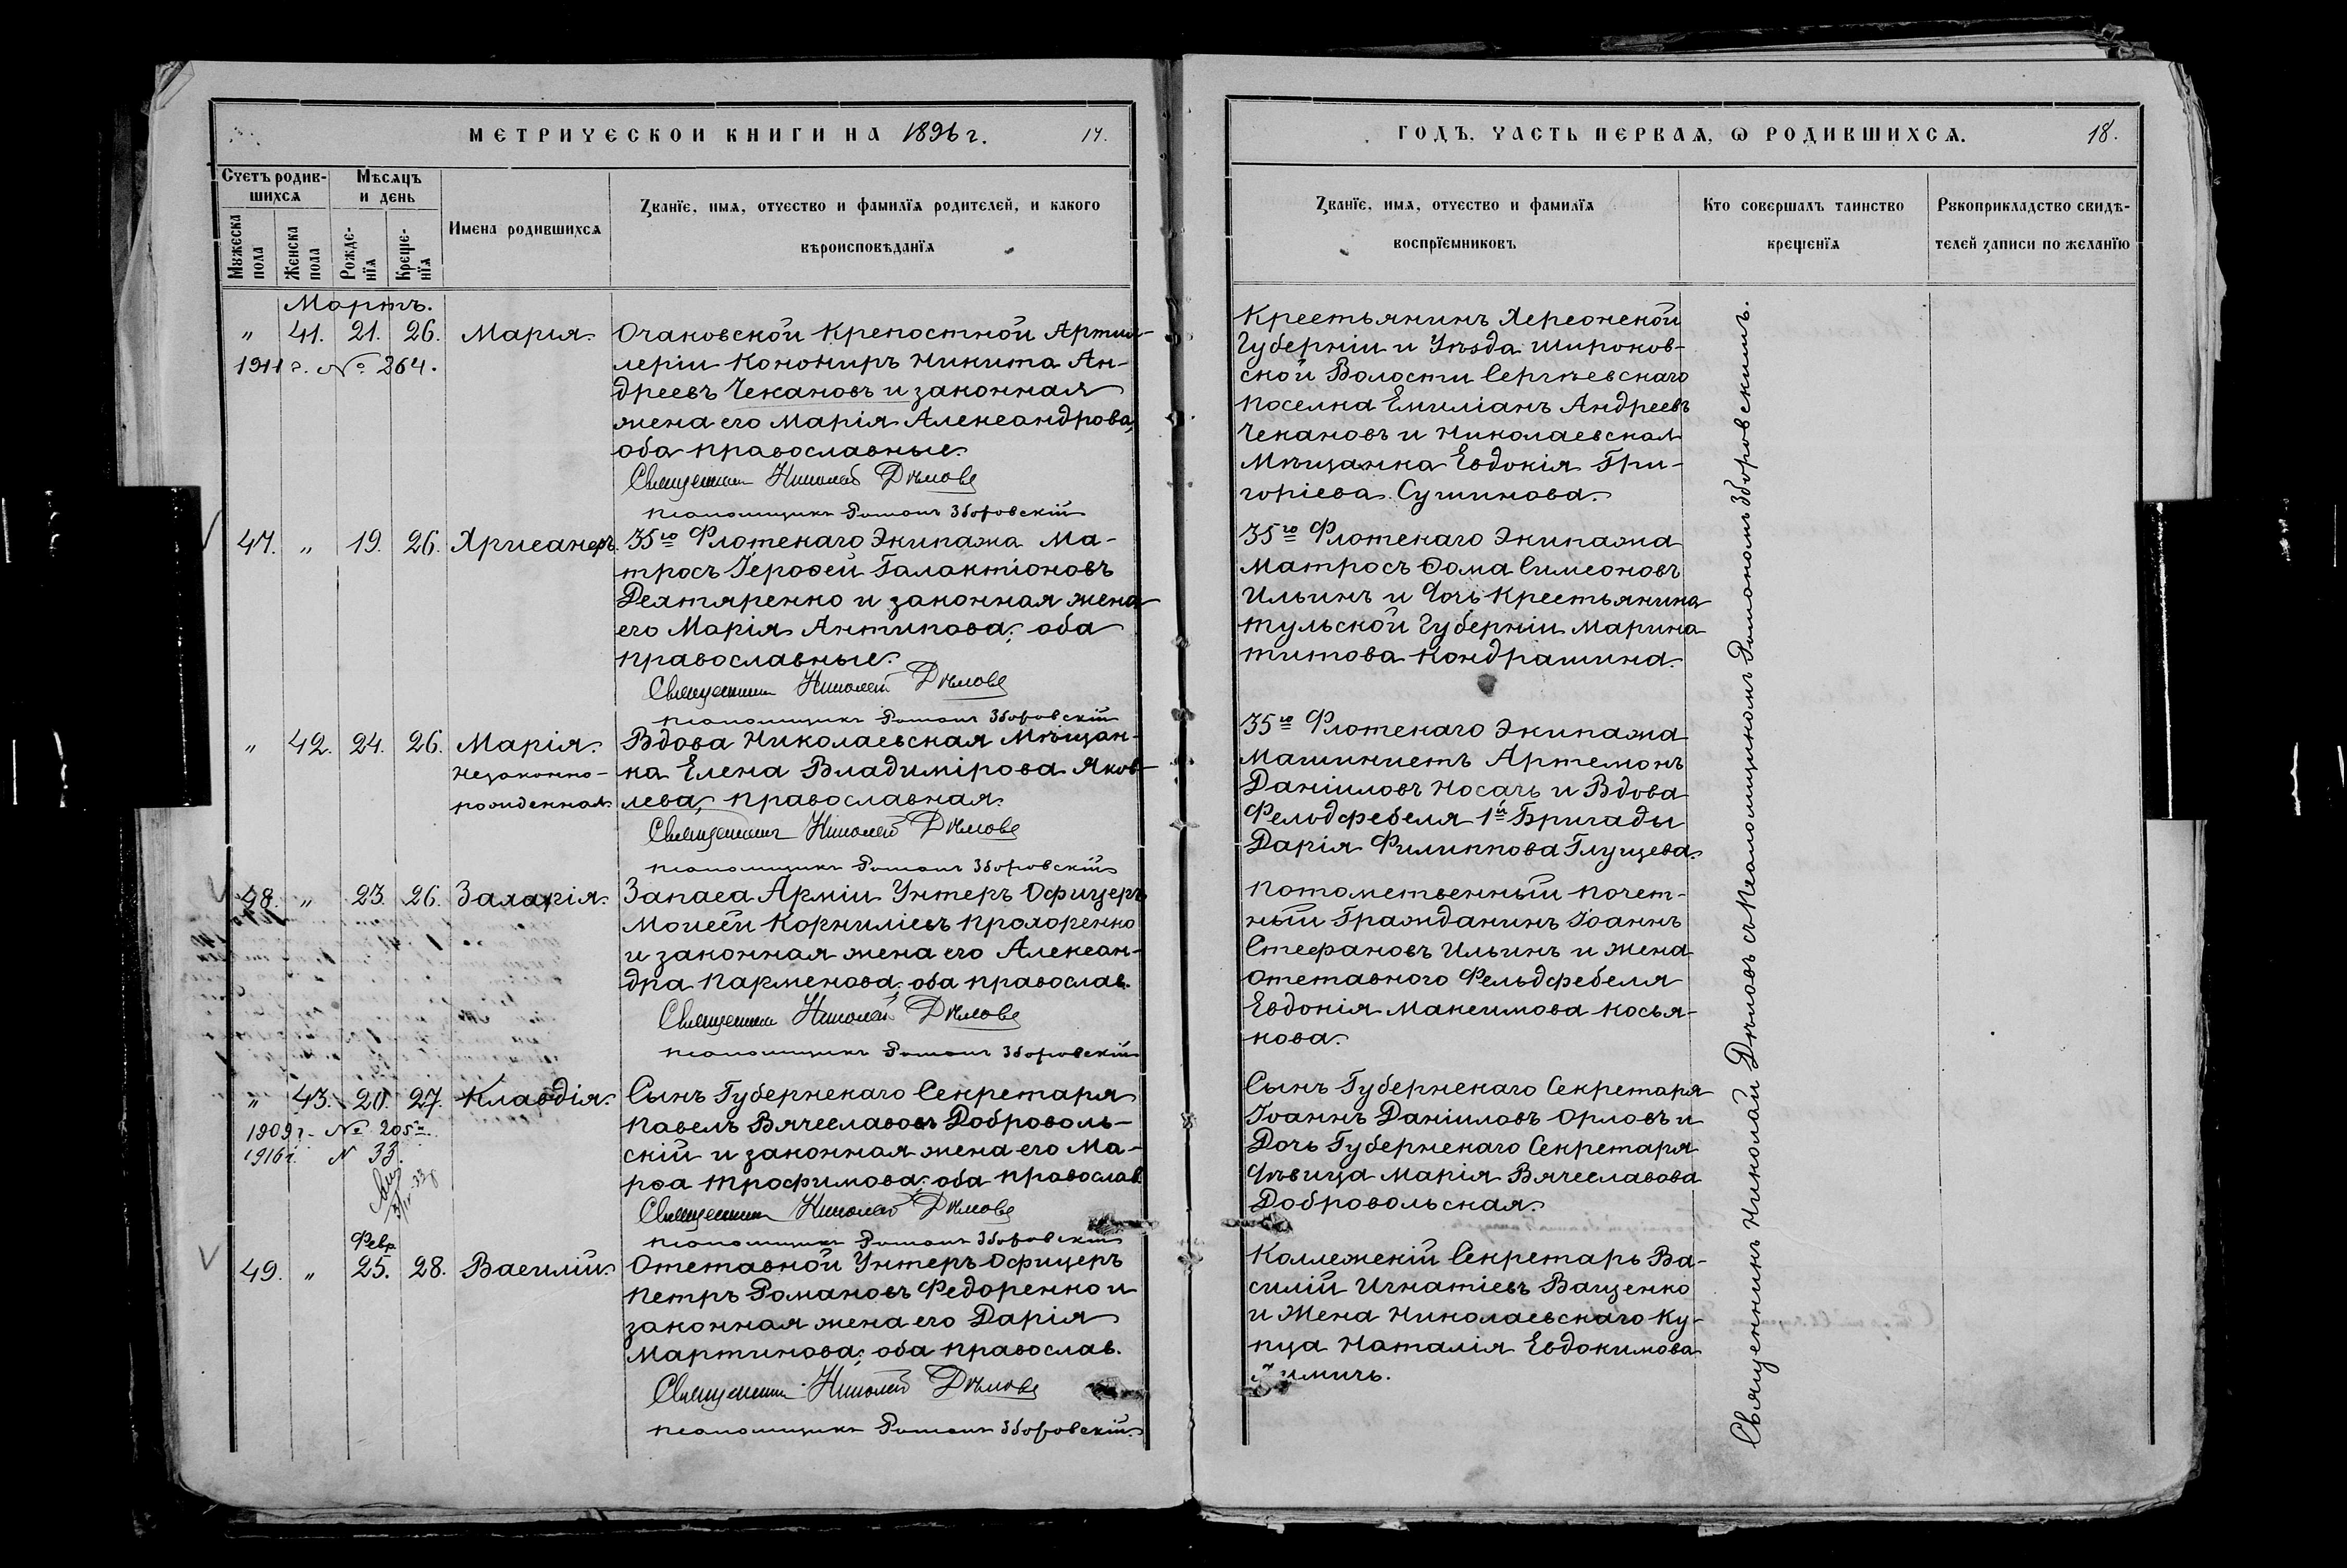 МЕТРИЧЕСКОЙ КНИГИ НА 1896 г.
17.
Счетъ родив-
шихся
Мѣсяцъ
и день
Мужеска
пола
Женска
пола
Рожде-
нїя
Креще-
нїя
Имена родившихся
Званїе, имя, отчество и фамилїя родителей, и какого
вѣроисповѣданїя
Мартъ.
" 41. 21. 26. Марія.
1911 г. № 264.
Очаковской Крепостной Артил-
леріи Канониръ Никита Ан-
дреевъ Чекановъ и законная
жена его Марія Александрова,
оба православные.
Священникъ Николай Дѣмовъ
Псаломщикъ Романъ Зборовскій
47. " 19. 26. Хрисанѳъ.
35го Флотскаго Экипажа Ма-
тросъ Іероѳей Галактіоновъ
Дехтяренко и законная жена
его Марія Антипова; оба
православные.
Священникъ Николай Дѣмовъ
Псаломщикъ Романъ Зборовскій
" 42. 24. 26. Марія.
незаконно-
рожденная.
Вдова Николаевская Мѣщан-
ка Елена Владимірова Яков-
лева, православная.
Священникъ Николай Дѣмовъ
Псаломщикъ Романъ Зборовскій
48. " 23. 26. Захарія.
Запаса Арміи Унтеръ Офицеръ
Моисей Корниліевъ Прохоренко
и законная жена его Алексан-
дра Парменова; оба православ.
Священникъ Николай Дѣмовъ
Псаломщикъ Романъ Зборовскій
" 43. 20. 27. Клавдія.
1909 г. № 205
1916 г. № 33.
Сынъ Губернскаго Секретаря
Павелъ Вячеславовъ Доброволь-
скій и законная жена его Ма-
рѳа Трофимова; оба православ.
Священникъ Николай Дѣмовъ
Псаломщикъ Романъ Зборовскій
Февр.
49. " 25. 28. Василій.
Отставной Унтеръ Офицеръ
Петръ Романовъ Федоренко и
законная жена его Дарія
Мартинова; оба православ.
Священникъ Николай Дѣмовъ
Псаломщикъ Романъ Зборовскій.
ГОДЪ, ЧАСТЬ ПЕРВАЯ, Ѡ РОДИВШИХСЯ.
18.
Званїе, имя, отчество и фамилїя
воспрїемниковъ
Кто совершалъ таинство
крещенїя
Рукоприкладство свидѣ-
телей записи по желанїю
Крестьянинъ Херсонской
Губерніи и Уѣзда Широков-
ской Волости Сергѣевскаго
поселка Емиліанъ Андреевъ
Чекановъ и Николаевская
Мѣщанка Евдокія Гри-
горіева Сушинова.
35го Флотскаго Экипажа
Матросъ Ѳома Симеоновъ
Ильинъ и Дочь Крестьянина
Тульской Губерніи Марина
Титова Кондрашина.
35го Флотскаго Экипажа
Машинистъ Артемонъ
Даніиловъ Носачъ и Вдова
Фельдфебеля 1й Бригады
Дарія Филиппова Глущева.
Потомственный Почет-
ный Гражданинъ Іоаннъ
Стефановъ Ильинъ и Жена
Отставного Фельдфебеля
Евдокія Максимова Косья-
нова.
Сынъ Губернскаго Секретаря
Іоаннъ Даніиловъ Орловъ и
Дочь Губернскаго Секретаря
Дѣвица Марія Вячеславова
Добровольская.
Коллежскій Секретарь Ва-
силій Игнатіевъ Ващенко
и Жена Николаевскаго Ку-
пца Наталія Евдокимова
Священникъ Николай Дѣмовъ съ Псаломщикомъ Романомъ Зборовскимъ.